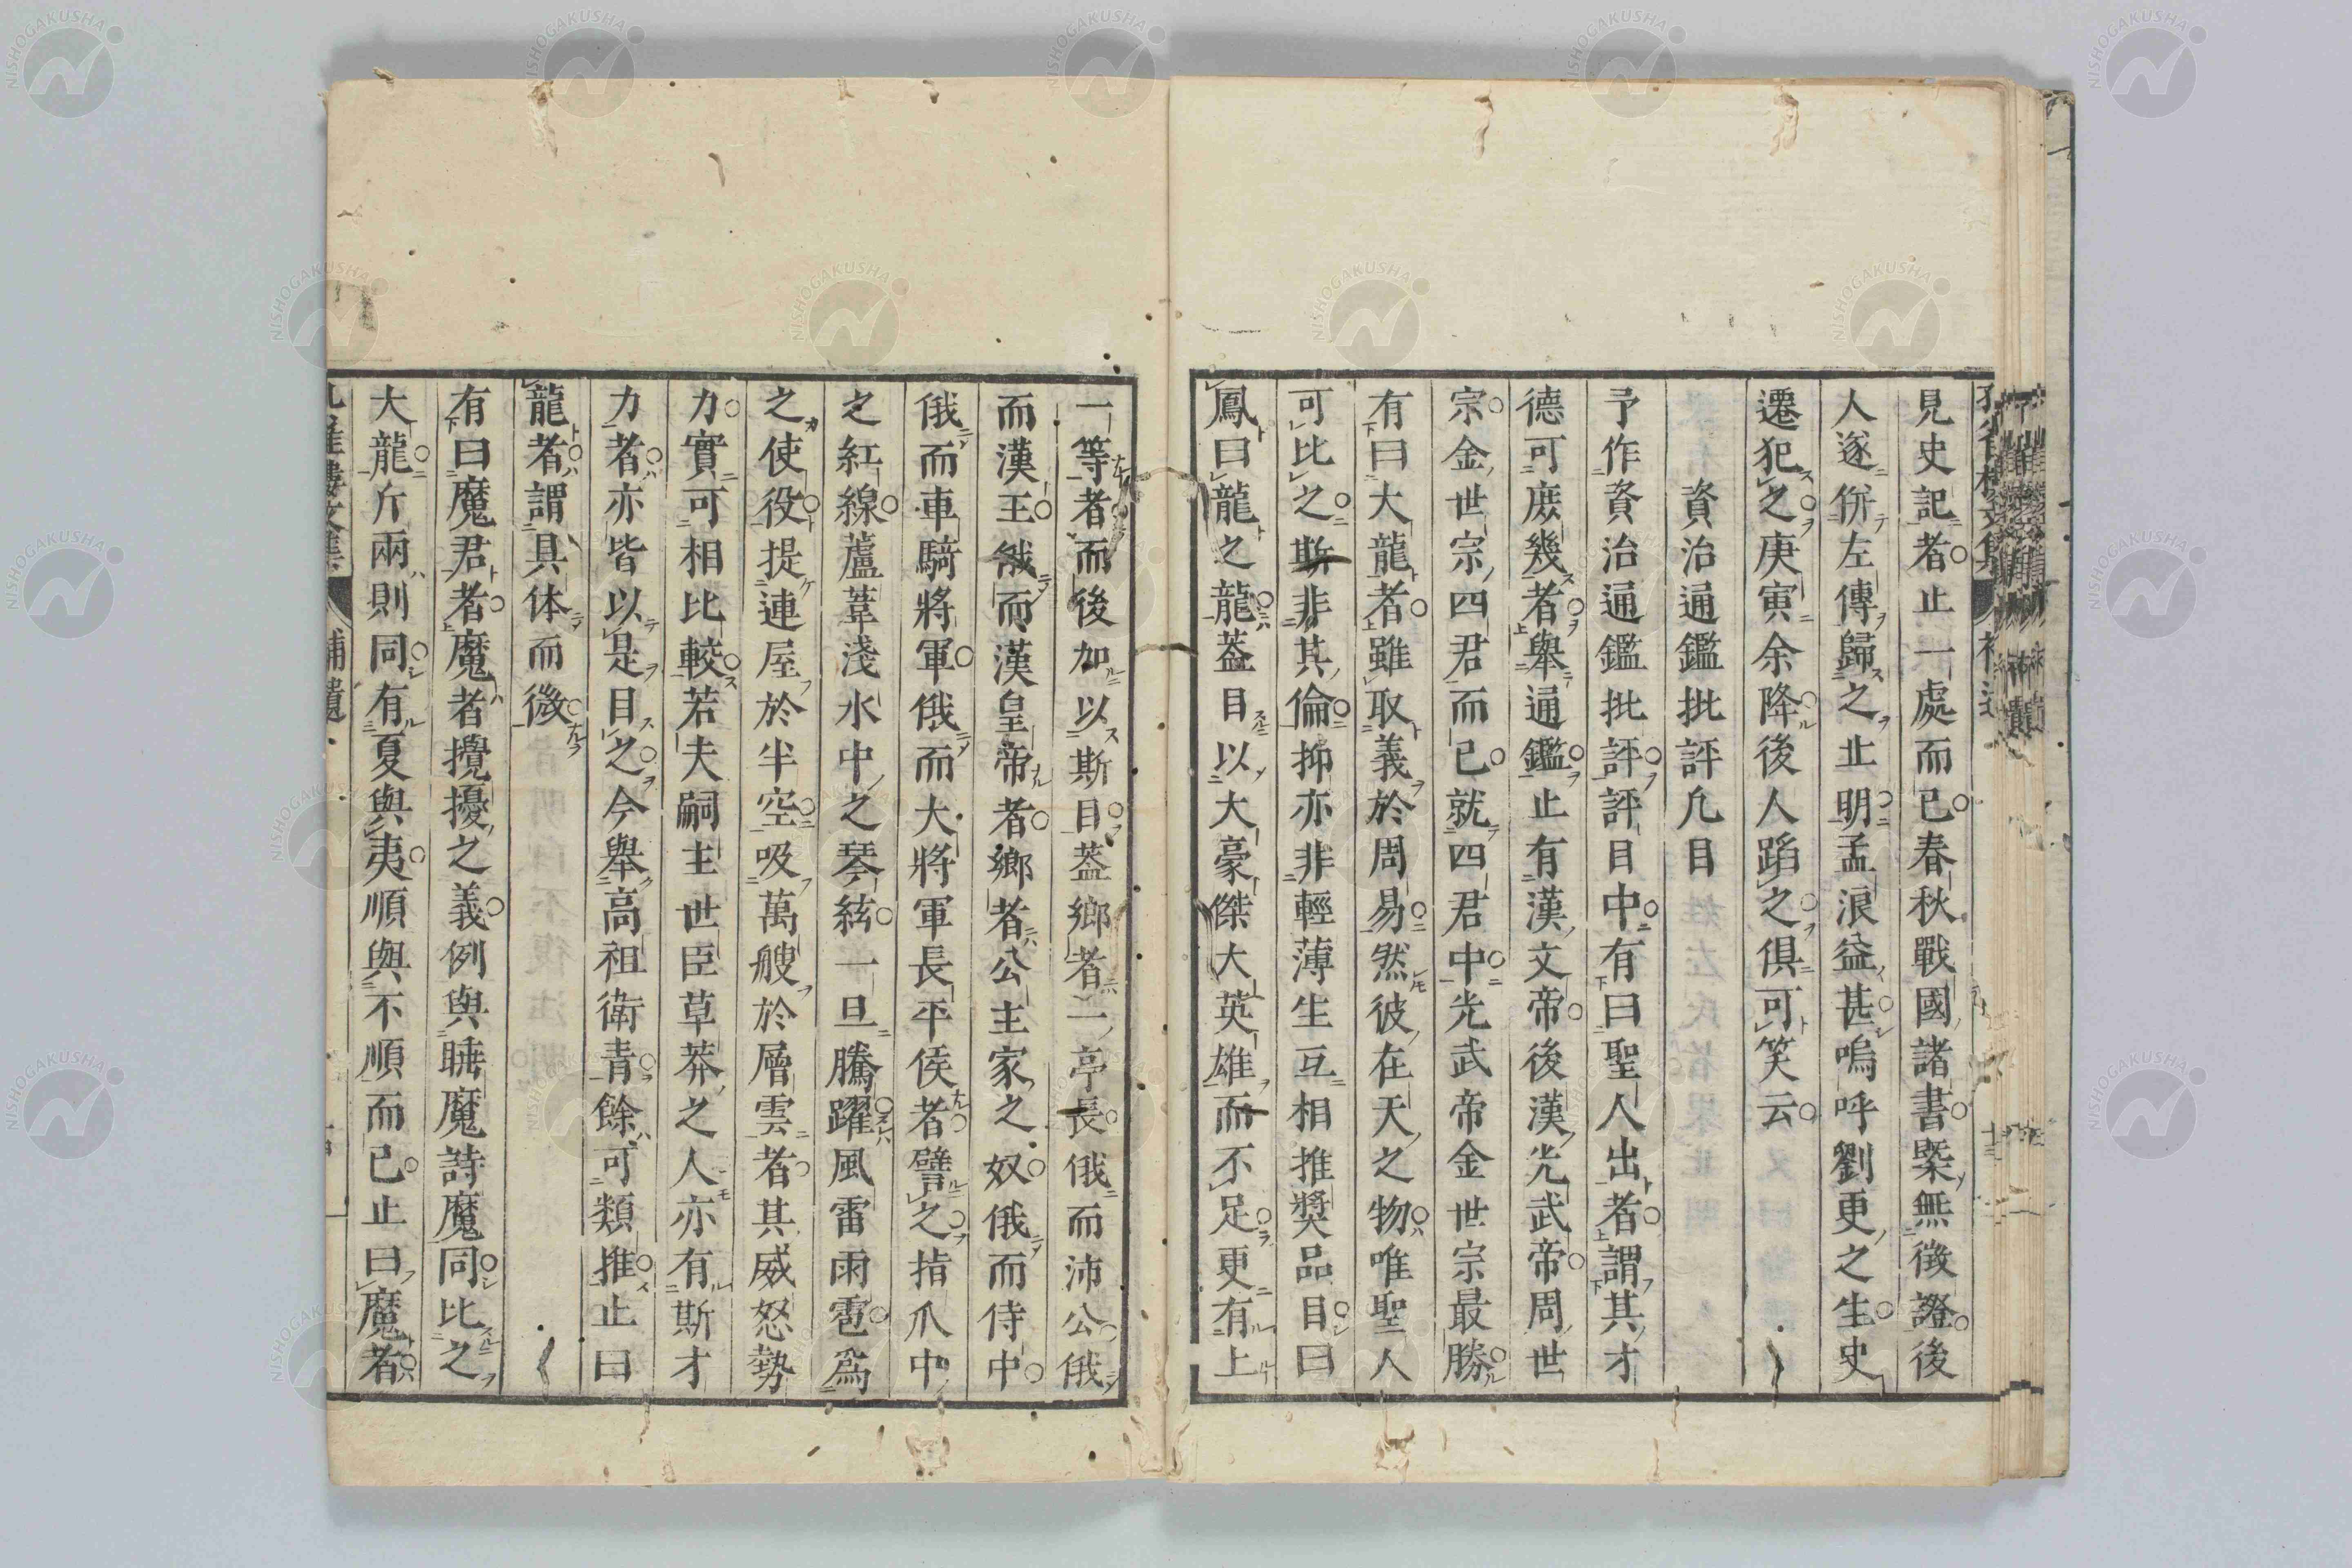 見史記者止一處而已春秋戰國諸書槩無徵證後
人遂併左傳歸之止明孟浪益甚嗚呼劉更之生史
遷犯之庚寅余降後人蹈之俱可笑云
資治通鑑批評凢目
予作資治通鑑批評評目中有曰聖人出者謂其才
德可庶幾者舉通鑑止有漢文帝後漢光武帝周世
宗金世宗四君而已就四君中光武帝金世宗最勝
有曰大龍者雖取義於周易然彼在天之物唯聖人
可比之斯非其倫抑亦非輕薄生互相推獎品目曰
鳳曰龍之龍葢目以大豪傑大英雄而不足更有上
一等者而後加以斯目葢鄉者二亭長俄而沛公俄
而漢王俄而漢皇帝者鄉者公主家之奴俄而侍中
俄而車騎將軍俄而大將軍長平侯者譬之指爪中
之紅線蘆葦淺水中之琴絃一旦騰躍風雷雨雹爲
之使役提連屋於半空吸萬艘於層雲者其威怒勢
力實可相比較若夫嗣主世臣草莽之人亦有斯才
力者亦皆以是目之今舉高祖衛青餘可類推止曰
龍者謂具体而微
有曰魔君者魔者攪擾之義例與睡魔詩魔同比之
大龍斤兩則同有夏與夷順與不順而已止曰魔者
補遺
NISHOGAKUSHA